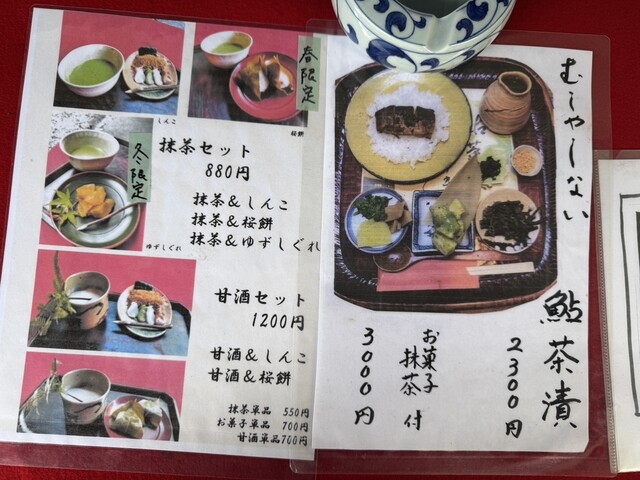 春限定
しんこ
桜餅
冬限定
ゆずしぐれ
抹茶セット
880円
抹茶&しんこ
抹茶&桜餅
抹茶&ゆずしぐれ
甘酒セット
1200円
甘酒&しんこ
甘酒&桜餅
抹茶単品 550円
お菓子単品 700円
甘酒単品700円
むしやしない
鮎茶漬
2300円
お菓子
抹茶 付
3000円